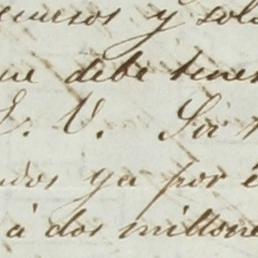 recursos y sol
que debe tener
E. V. Sir
dos ya por é
à dos millone